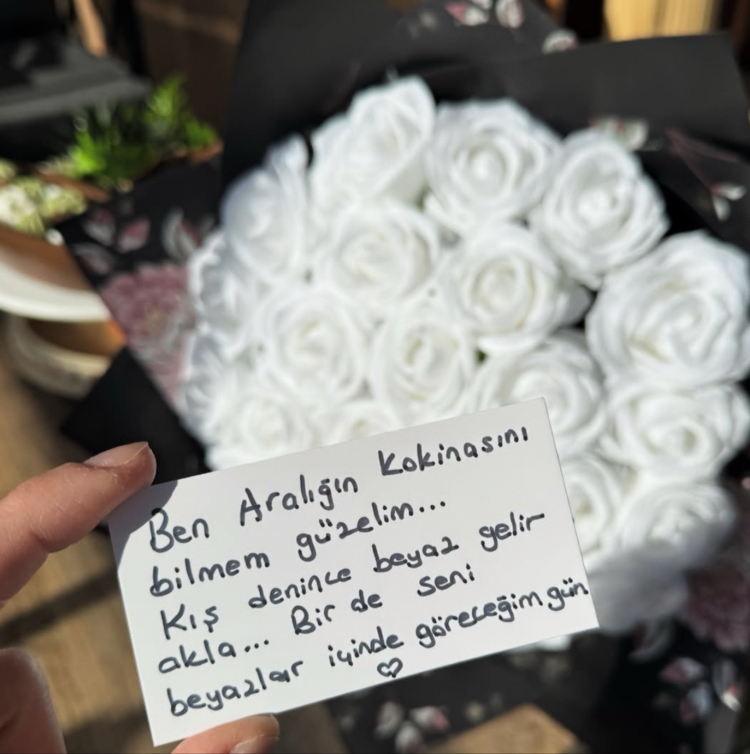 Ben Aralığın Kokinasını
bilmem güzelim...
Kış denince beyaz gelir
akla... Bir de seni
beyazlar içinde göreceğim gün
♡